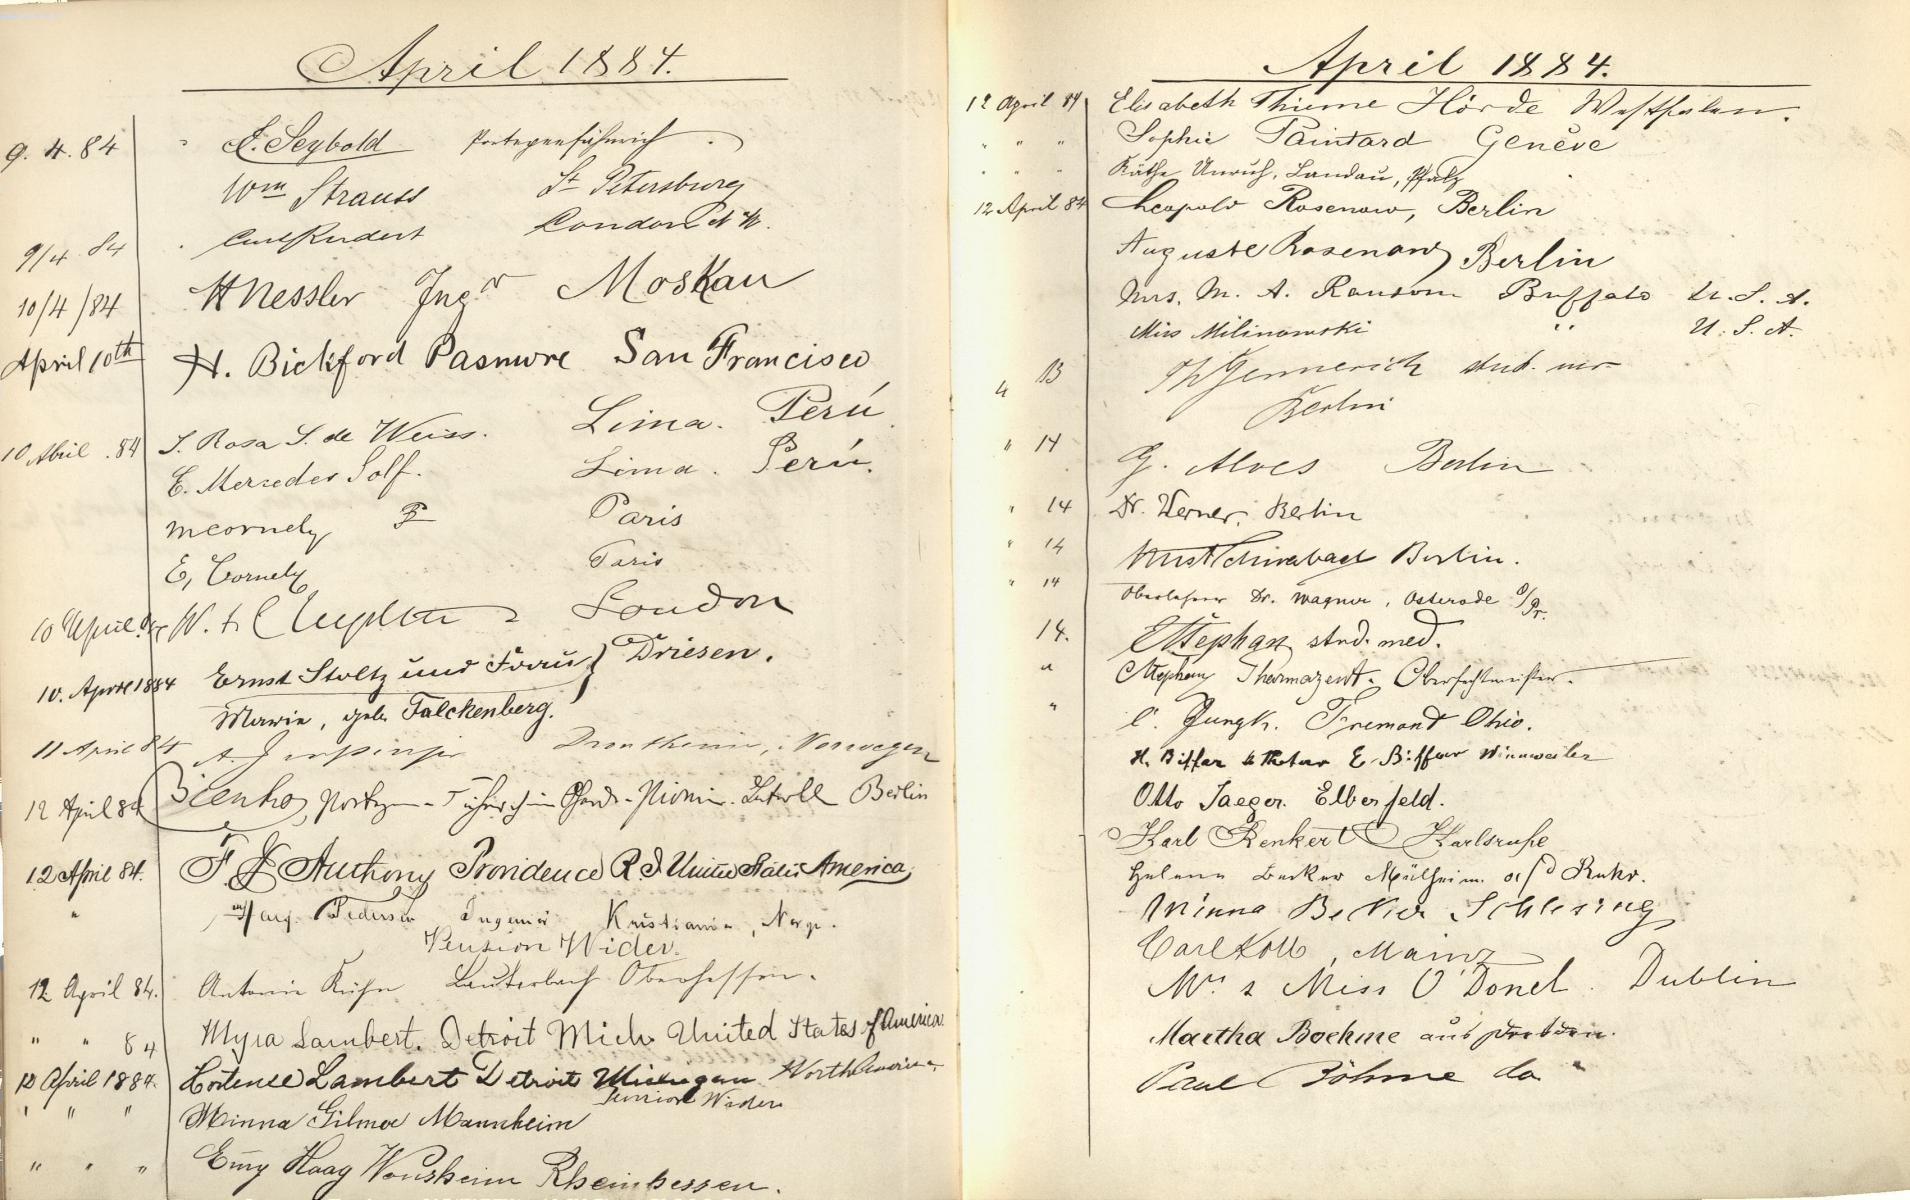 April 1884.
9. 4. 84 E. Seybold Portepeefähnrich
Wm Strauss St Petersburg
Carl Rudert London N.W.
9/4 84
10/4/84 H Nessler Ingr Moskau
April 10th H. Bickford Pasmore San Francisco
10 Abril . 84 S. Rosa S. de Weiss. Lima. Perú
E. Mercedes Solf. Lima. Perú.
M Cornely Paris
E, Cornely Paris
10 April 84 W. London
10. April 1884 Ernst Stoltz und Frau } Driesen.
Marie, geb. Falckenberg.
11 April 84 A. Drontheim, Norwegen
12 April 84 Bienko, Berlin
12 April 84. F J Anthony Providence R. I United States America,
" Marg. Pedersen Ingeniör Kristiania, Norge.
Pension Wider.
12 April 84. Antonie Kuhn Lauterbach Oberhessen.
" " 84 Myra Lambert. Detroit Mich United States of America
12 April 1884. Hortense Lambert Detroit Michigan North America.
Pension Wider
" " " Minna Gilmer Mannheim
" " " Emy Haag Wonsheim Rheinhessen.
April 1884.
12 April 84 Elisabeth Thieme Hörde Westfalen.
" " " Sophie Paintard Genève
" " " Käthe Unruh, Landau, Pfalz
12 April 84 Leopold Rosenow, Berlin
Auguste Rosenow Berlin
Mrs. M. A. Ransom Buffalo U. S. A.
Miss Milinowski " U. S. A.
" 13 Th Gennerich stud.
Berlin
" 14 G. Alves Berlin
" 14 Dr. Werner, Berlin
" 14 Berlin.
" 14 Oberlehrer Dr. Wagner, Osterode O/Pr.
14. E Stephan stud. med.
" C Stephany Oberfechtmeister.
" C. Jungk. Fremont Ohio.
H. Biffar E. Biffar Winnweiler
Otto Jaeger. Elberfeld.
Karl Renkert Karlsruhe
Helene Becker Mülheim a/d Ruhr.
Minna Becker Schlesing
Carl Koll, Mainz
Mr. & Miss O'Donel. Dublin
Martha Boehme aus Dresden.
Paul Böhme do "